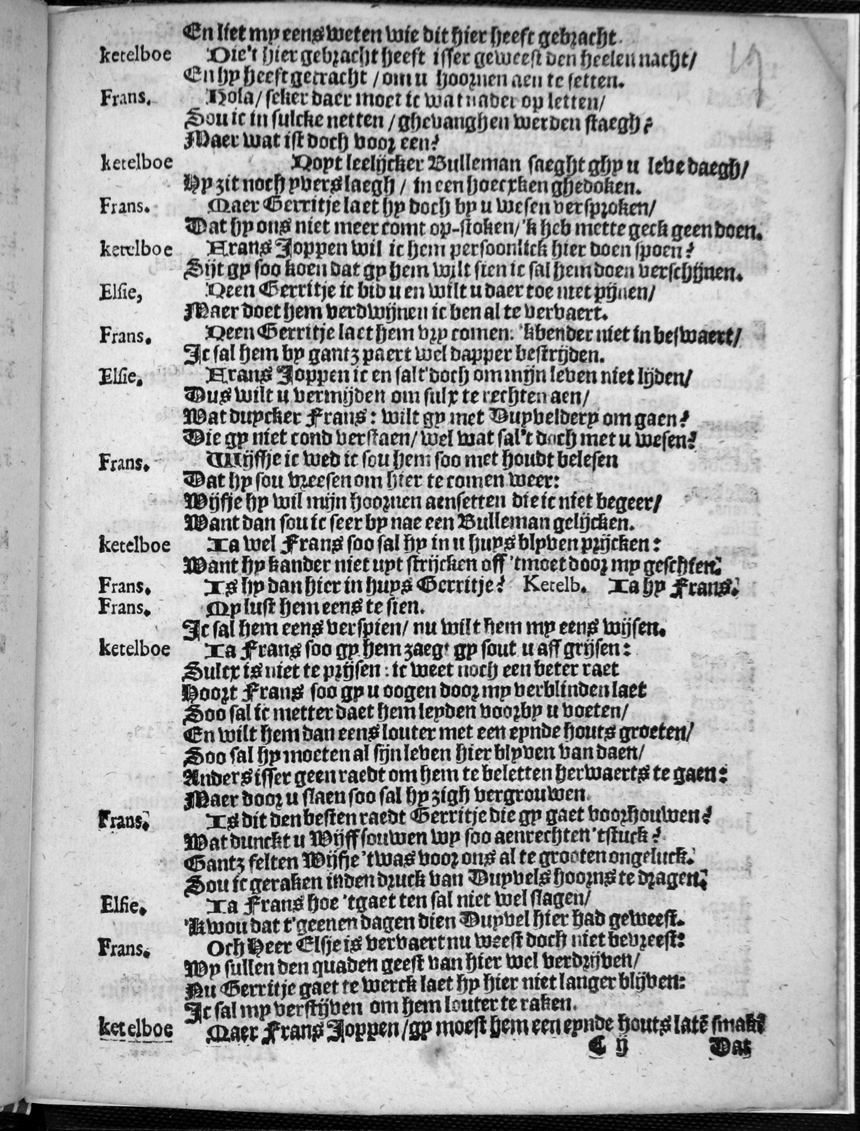 En liet my eens weten wie dit hier heeft gebracht.
ketelboe Die't hier gebracht heeft isser geweest den heelen nacht/
En hy heeft getracht / om u hoornen aen te setten.
Frans. Hola/ seker daer moet ic wat nader op letten/
Sou ic in sulcke netten / ghevanghen werden staegh?
Maer wat ist doch voor een?
ketelboe Noyt leelijcker Bulleman saeght ghy u leve daegh/
Hy zit noch yverslaegh / in een hoecxken ghedoken.
Frans. Maer Gerritje laet hy doch by u wesen versproken/
Dat hy ons niet meer comt op-stoken/ 'k heb mette geck geen doen.
ketelboe Frans Joppen wil ic hem persoonlick hier doen spoen?
Sijt gy soo koen dat gy hem wilt sien ic sal hem doen verschijnen.
Elsie, Neen Gerritje ic bid u en wilt u daer toe niet pijnen/
Maer doet hem verdwijnen ic ben al te vervaert.
Frans. Neen Gerritje laet hem vry comen: 'kbender niet in beswaert/
Ic sal hem by gantz paert wel dapper bestrijden.
Elsie. Frans Joppen ic en salt doch om mijn leven niet lijden/
Dus wilt u vermijden om sulx te rechten aen/
Wat duycker Frans: wilt gy met Duyveldery om gaen?
Die gy niet cond verstaen/ wel wat sal't doch met u wesen?
Frans. Wijfje ic wed ic sou hem soo met houdt belesen
Dat hy sou vreesen om hier te comen weer:
Wijfje hy wil mijn hoornen aensetten die ic niet begeer/
Want dan sou ic seer by nae een Bulleman gelijcken.
ketelboe Ia wel Frans soo sal hy in u huys blyven prijcken:
Want hy kander niet uyt strijcken off 'tmoet door my geschien.
Frans. Is hy dan hier in huys Gerritje? Ketelb. Ia hy Frans.
Frans. My lust hem eens te sien.
Ic sal hem eens verspien/ nu wilt hem my eens wijsen.
ketelboe Ia Frans soo gy hem zaegt gy sout u aff grijsen:
Sulcx is niet te prijsen: ic weet noch een beter raet
Hoort Frans soo gy u oogen door my verblinden laet
Soo sal ic metter daet hem leyden voorby u voeten/
En wilt hem dan eens louter met een eynde houts groeten/
Soo sal hy moeten al sijn leven hier blyven van daen/
Anders isser geen raedt om hem te beletten herwaerts te gaen:
Maer door u slaen soo sal hy zigh vergrouwen.
Frans. Is dit den besten raedt Gerritje die gy gaet voorhouwen?
Wat dunckt u Wijff souwen wy soo aenrechten 'tstuck?
Gantz felten Wijfje 'twas voor ons al te grooten ongeluck.
Sou ic geraken inden druck van Duyvels hoorns te dragen.
Elsie. Ia Frans hoe 'tgaet ten sal niet wel slagen/
'Kwou dat t'geenen dagen dien Duyvel hier had geweest.
Frans. Och Heer Elsje is vervaert nu weest doch niet bevreest:
Wy sullen den quaden geest van hier wel verdrijven/
Nu Gerritje gaet te werck laet hy hier niet langer blijven:
Ic sal my verstijven om hem louter te raken.
ketelboe Maer Frans Joppen/ gy moest hem een eynde houts latē smakē
C ij Dat